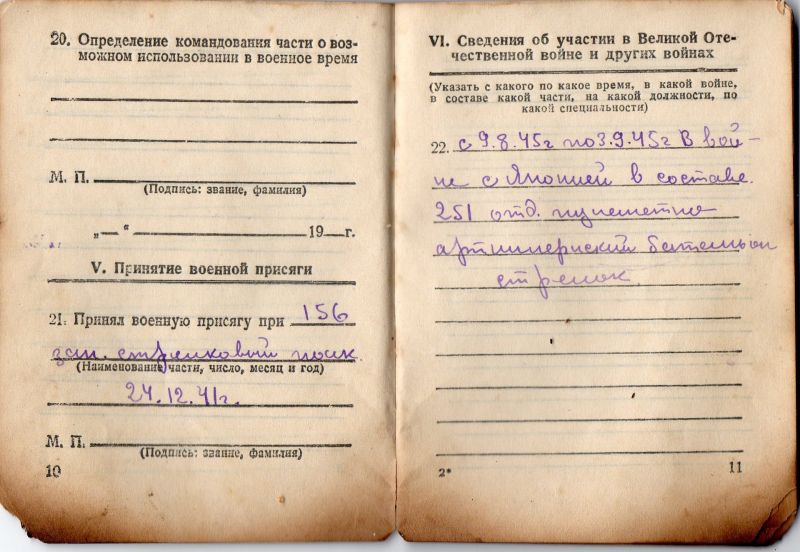 20. Определение командования части о воз-
можном использовании в военное время
М. П.
(Подпись: звание, фамилия)
„—“ 19—г.
V. Принятие военной присяги
21. Принял военную присягу при 156
зап. стрелковый полк.
(Наименование части, число, месяц и год)
24.12.41г.
М. П.
(Подпись: звание, фамилия)
10
VI. Сведения об участии в Великой Оте-
чественной войне и других войнах
(Указать с какого по какое время, в какой войне,
в составе какой части, на какой должности, по
какой специальности)
22. с 9.8.45г по 3.9.45г В вой-
не с Японией в составе
251 отд. пулеметно
артиллерийский батальон
стрелок.
2*
11